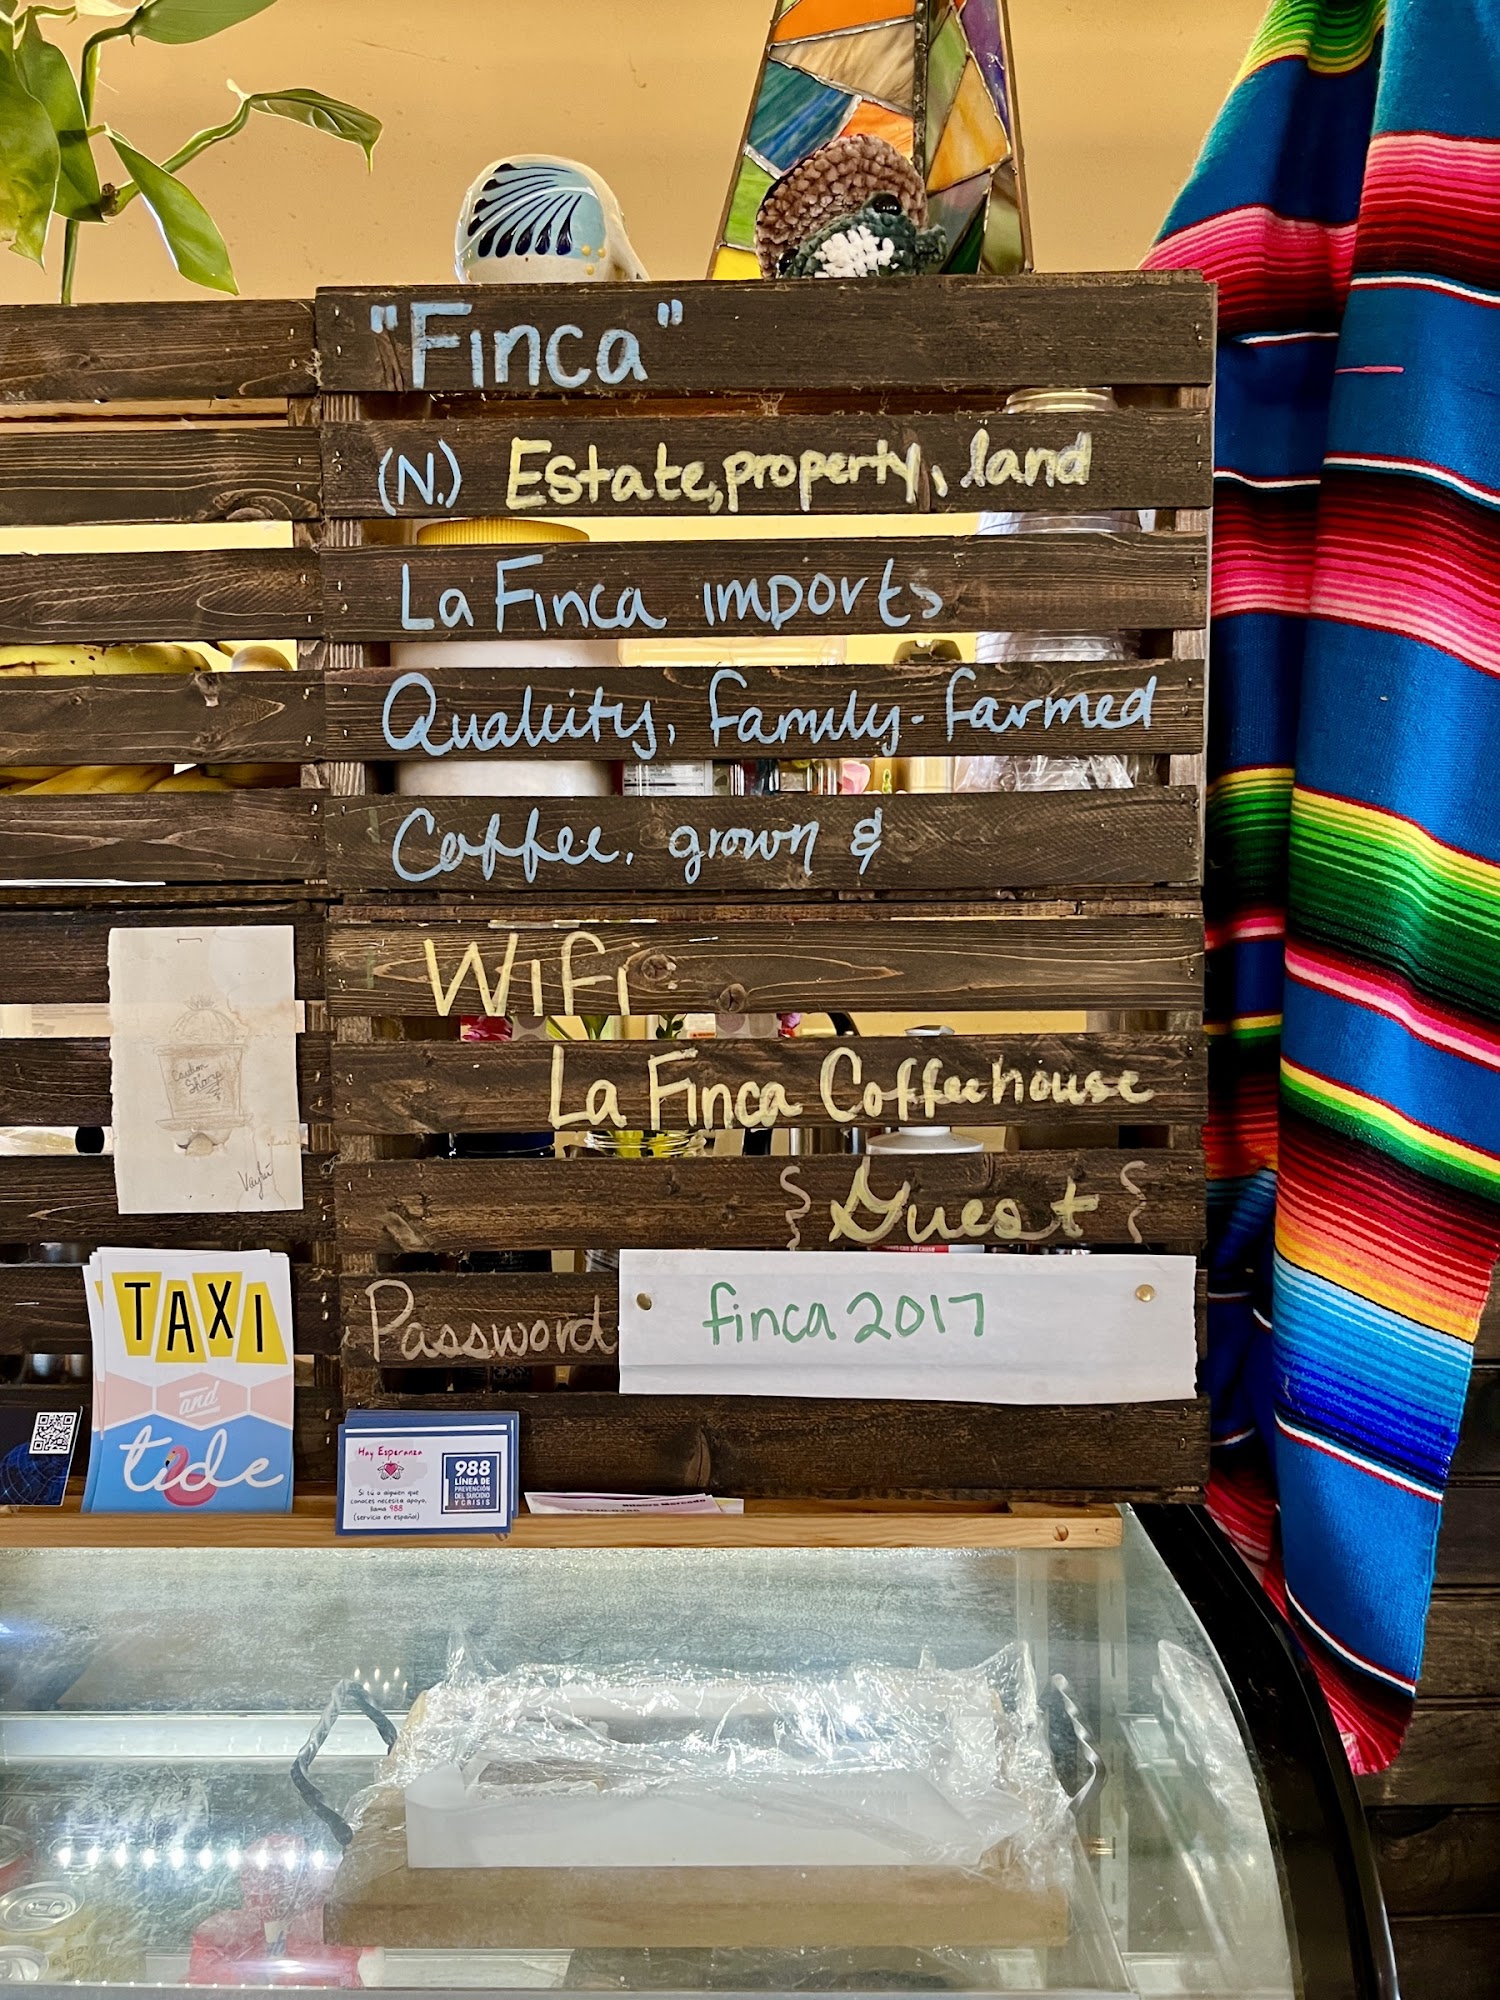 "Finca"
(N.) Estate, property, land
La Finca imports
Quality, family-farmed
Coffee, grown &
Wifi
La Finca Coffeehouse
{Guest{
Password
finca2017
TAXI
and
tide
Hay Esperanza
Si tú o alguien que
conoces necesita apoyo,
llama 988
(servicio en español)
988
LÍNEA DE
PREVENCIÓN
DEL SUICIDIO
Y CRISIS